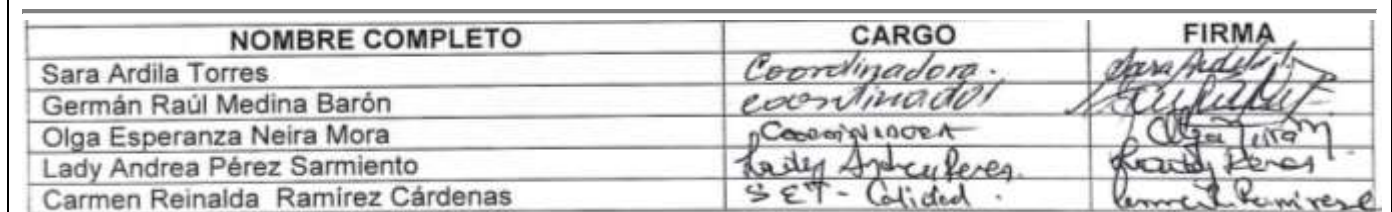 NOMBRE COMPLETO CARGO FIRMA
Sara Ardila Torres Coordinadora.
Germán Raúl Medina Barón coordinador
Olga Esperanza Neira Mora COORDINADORA Olga Neira M
Lady Andrea Pérez Sarmiento Lady Andrea Peres. Lady Peres
Carmen Reinalda Ramírez Cárdenas SET - Calidad. Carmen R Ramirez C